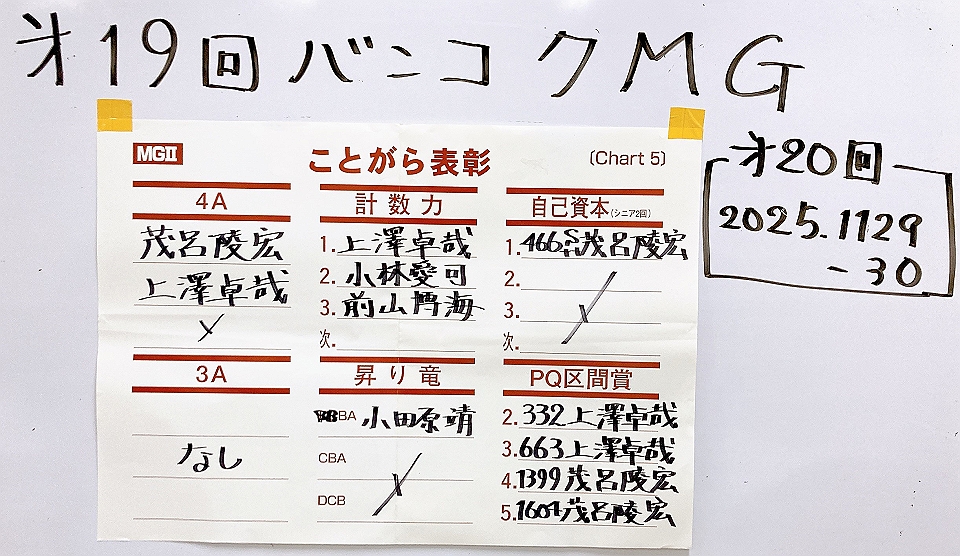 才19回 バンコクMG
才20回
2025.1129
-30
MGⅡ
ことがら表彰
(Chart 5)
4A
茂呂陵宏
上澤卓哉
3A
なし
計数力
1. 上澤卓哉
2. 小林愛可
3. 前山博海
次.
昇り竜
BA 小田原靖
CBA
DCB
自己資本(シニア2回)
1. 466 茂呂陵宏
2.
3.
次.
PQ区間賞
2. 332 上澤卓哉
3. 663 上澤卓哉
4. 1399 茂呂陵宏
5. 1604 茂呂陵宏